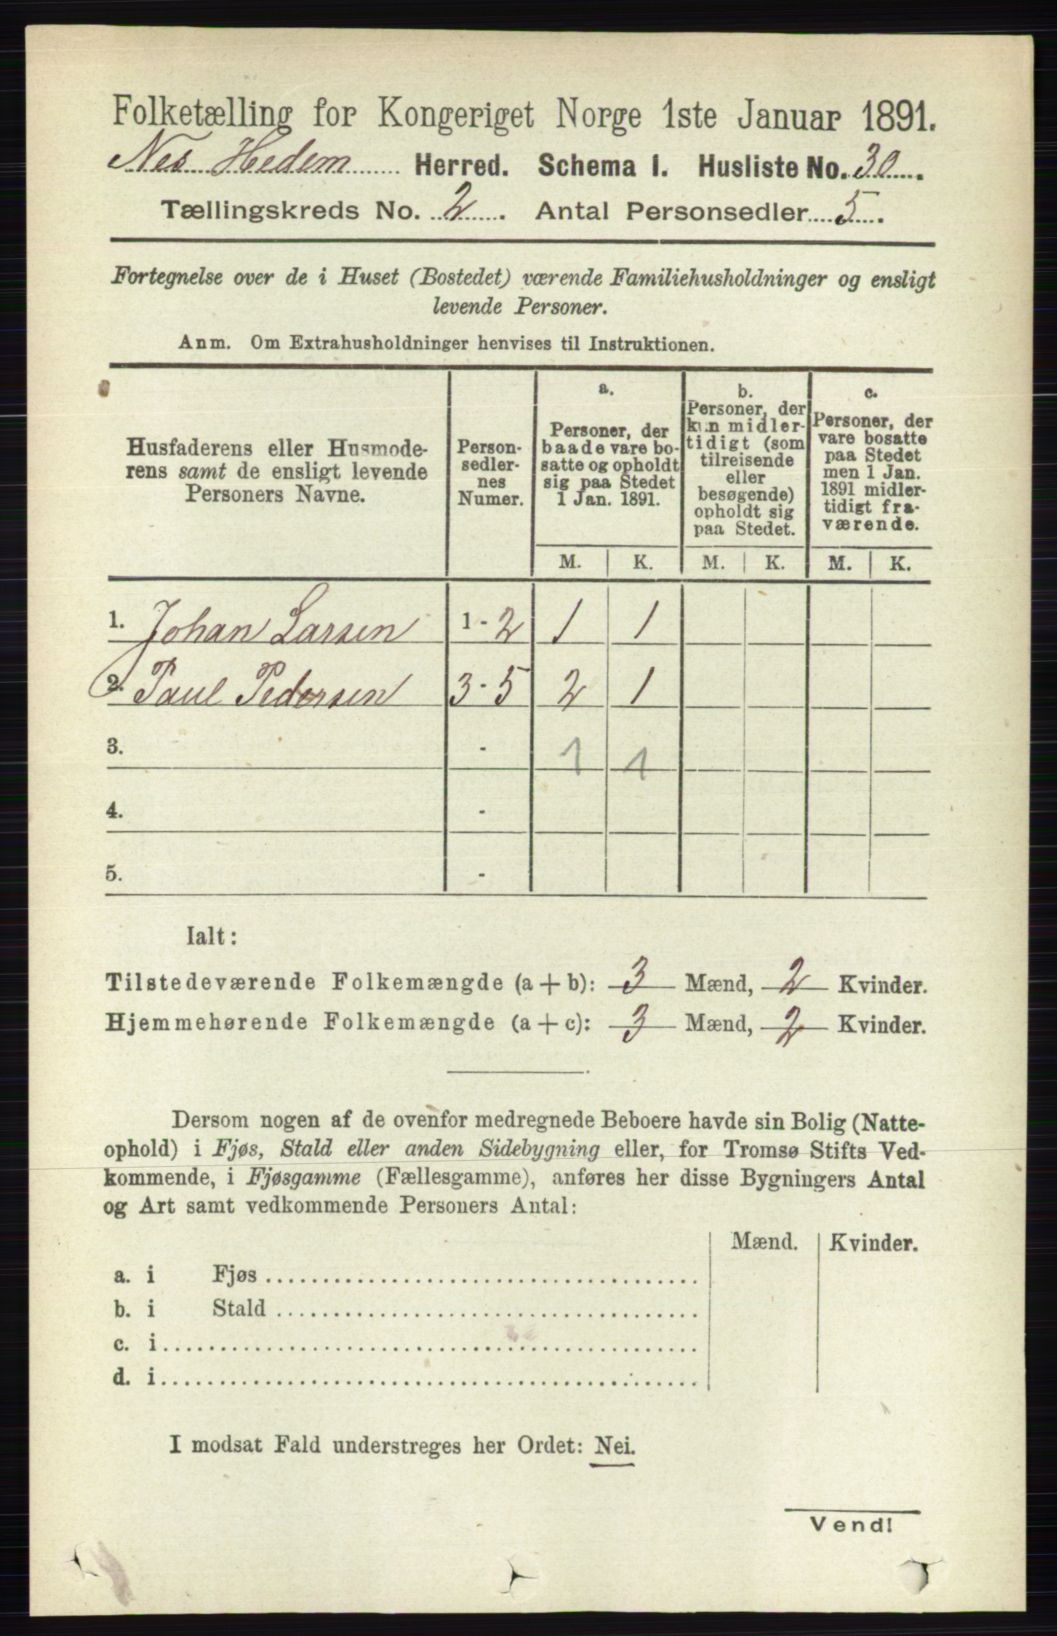 Folketælling for Kongeriget Norge 1ste Januar 1891.
Nes Hedem Herred. Schema I. Husliste No. 30.
Tællingskreds No. 2. Antal Personsedler 5.
Fortegnelse over de i Huset (Bostedet) værende Familiehusholdninger og ensligt
levende Personer.
Anm. Om Extrahusholdninger henvises til Instruktionen.
Husfaderens eller Husmode-
rens samt de ensligt levende
Personers Navne.
Person-
sedler-
nes
Numer.
a.
Personer, der
baade vare bo-
satte og opholdt
sig paa Stedet
1 Jan. 1891.
b.
Personer, der
kun midler-
tidigt (som
tilreisende
eller
besøgende)
opholdt sig
paa Stedet.
c.
Personer, der
vare bosatte
paa Stedet
men 1 Jan.
1891 midler-
tidigt fra-
værende.
M. K. M. K. M. K.
1. Johan Larsen 1 - 2 1 1
2. Paul Pedersen 3 - 5 2 1
3. - 1 1
4. -
5. -
Ialt:
Tilstedeværende Folkemængde (a + b): 3 Mænd, 2 Kvinder.
Hjemmehørende Folkemængde (a + c): 3 Mænd, 2 Kvinder.
Dersom nogen af de ovenfor medregnede Beboere havde sin Bolig (Natte-
ophold) i Fjøs, Stald eller anden Sidebygning eller, for Tromsø Stifts Ved-
kommende, i Fjøsgamme (Fællesgamme), anføres her disse Bygningers Antal
og Art samt vedkommende Personers Antal:
Mænd. Kvinder.
a. i Fjøs
b. i Stald
c. i
d. i
I modsat Fald understreges her Ordet: Nei.
Vend!